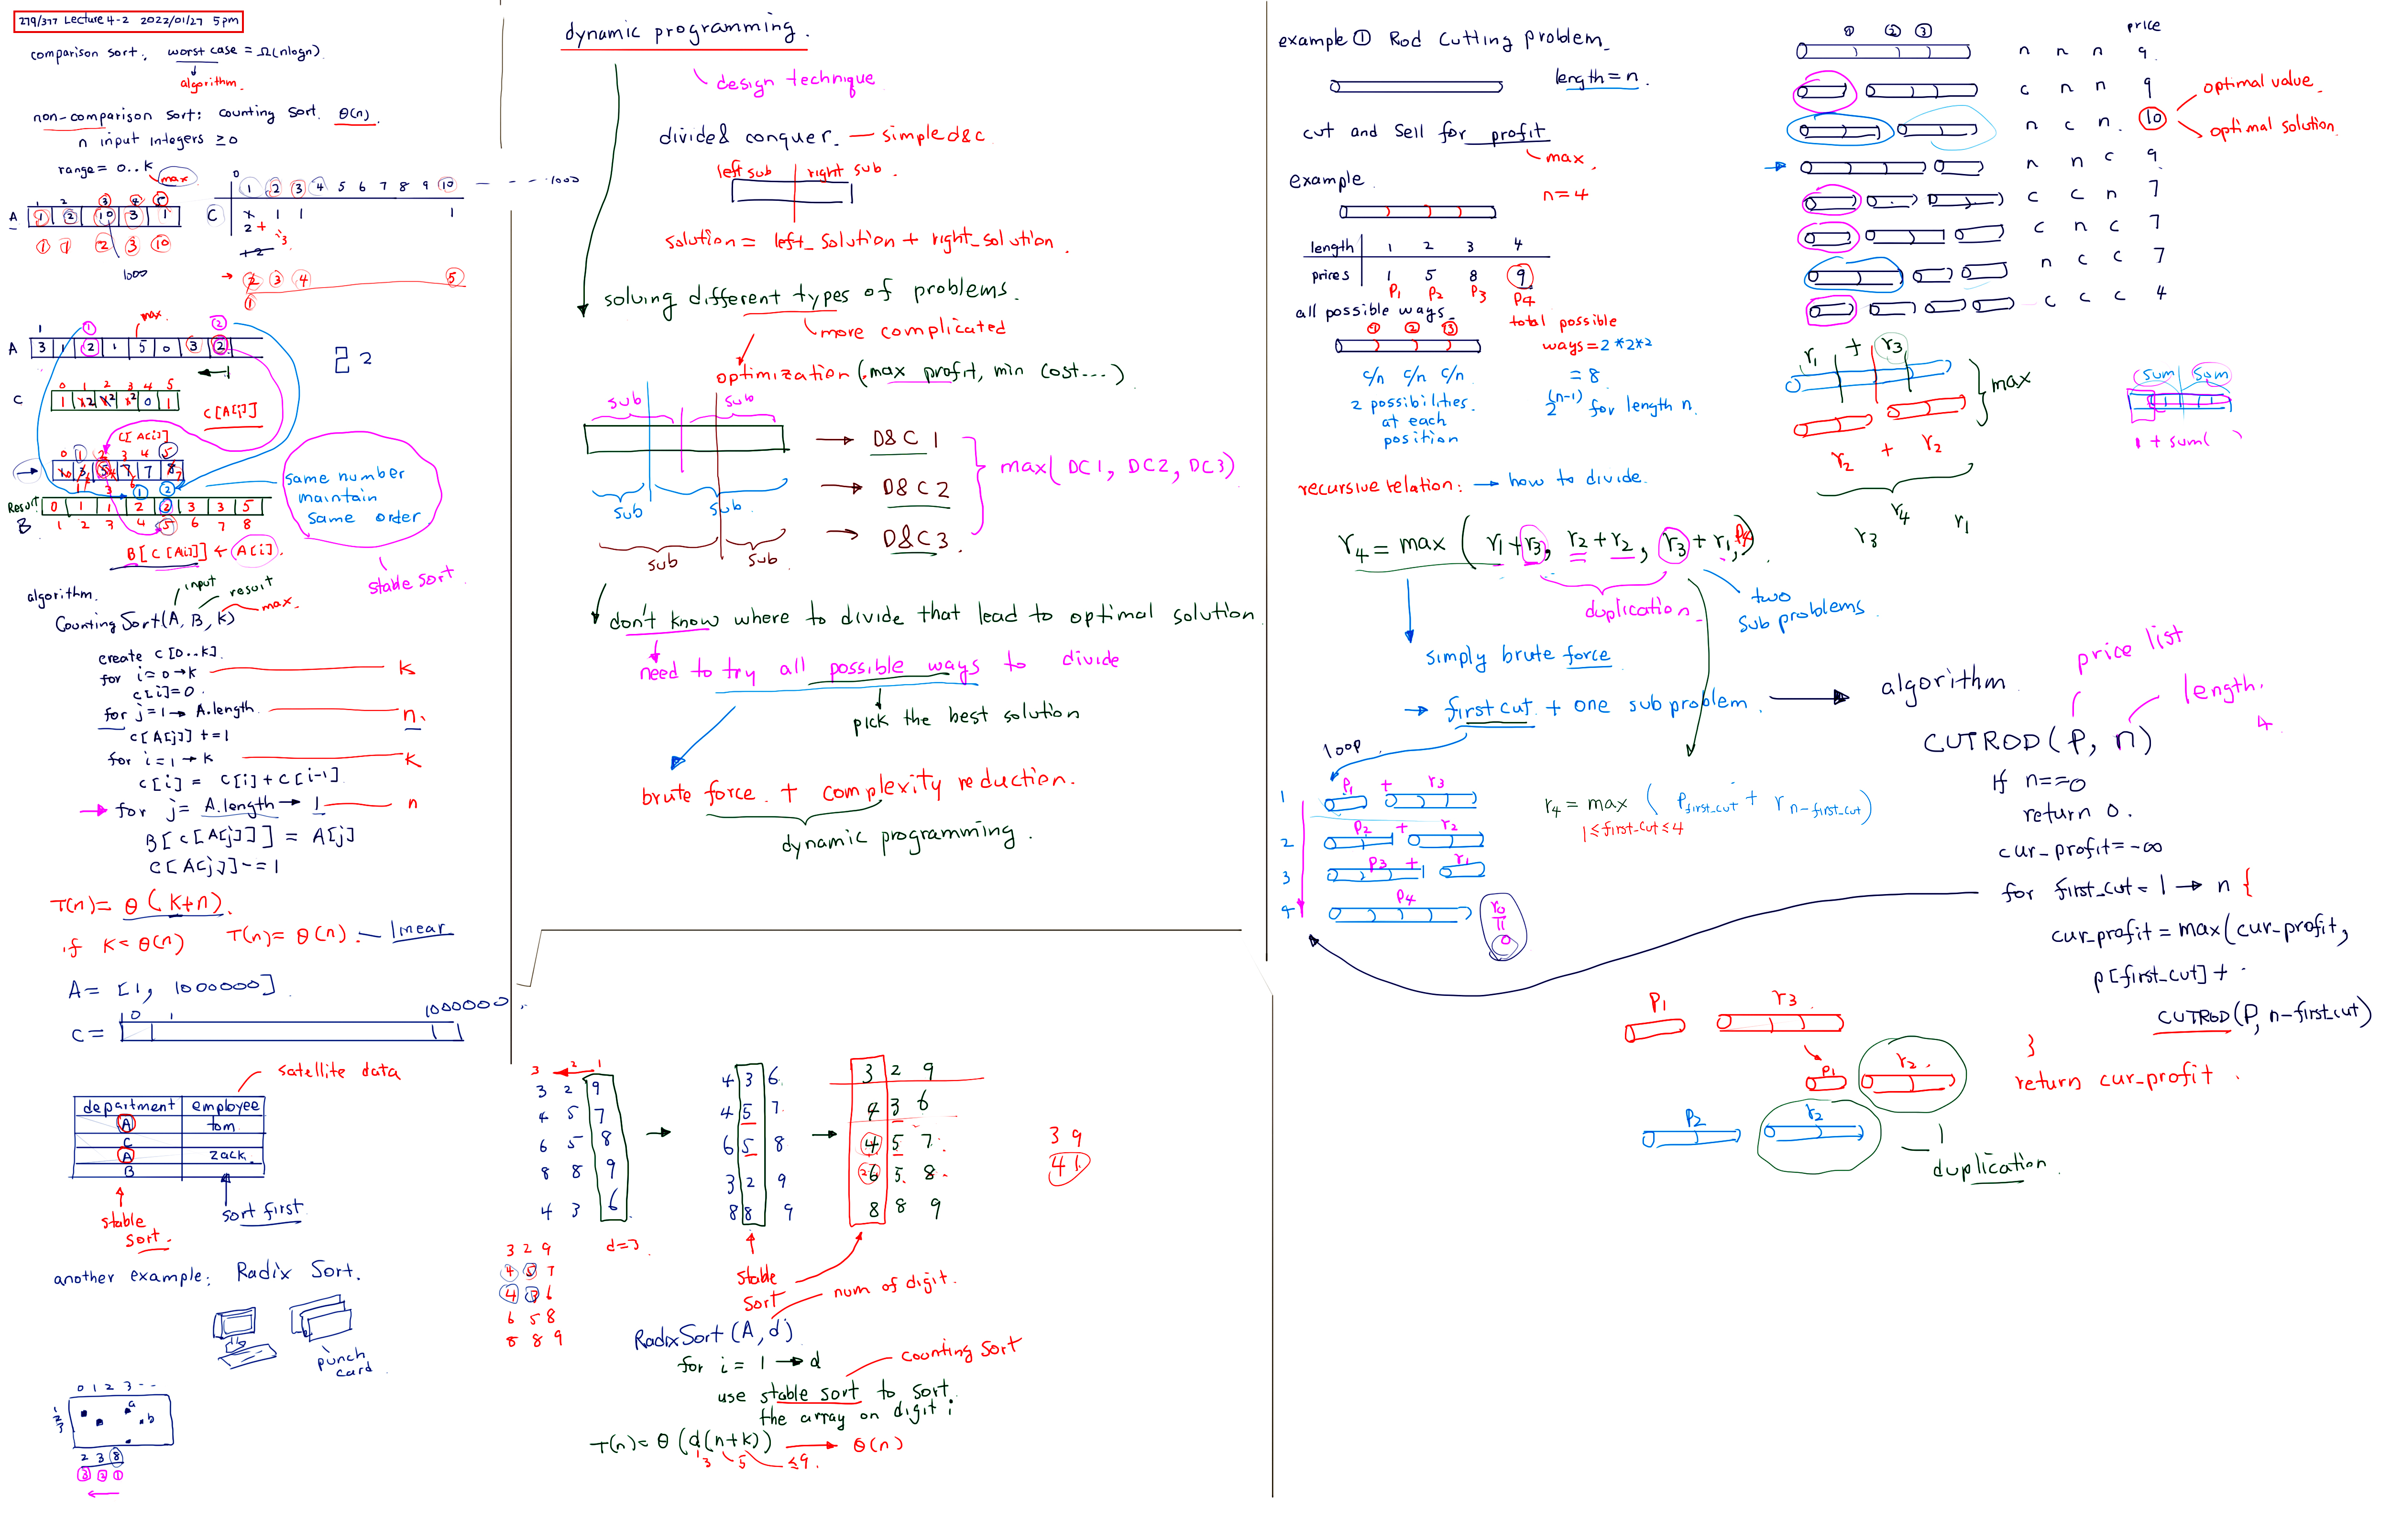 279/377 Lecture 4-2 2022/01/27 5pm
comparison sort. worst case = Ω(nlogn).
algorithm.
non-comparison sort: counting sort. θ(n).
n input integers ≥0
range = 0..k
max
0
1 2 3 4 5 6 7 8 9 10 - - - 1000
1 2 3 4 5
A 1 2 10 3 1
C x 1 1 1
2
1 1 2 3 10
1000
2 3 4 5
1
max
1 1 2
A 3 1 2 1 5 0 3 2
2 2
0 1 2 3 4 5
C 1 x2 x2 x2 0 1
C[A[j]]
C[A[i]]
0 1 2 3 4 5
1 3 5 7 7 8
1 2
same number
maintain
same order
Result 0 1 1 2 2 3 3 5
B 1 2 3 4 5 6 7 8
B[C[A[i]]] ← A[i].
stable sort.
algorithm.
input
result
max.
CountingSort(A, B, k)
create c[0..k].
for i=0→k k
c[i]=0.
for j=1→A.length. n.
c[A[j]] +=1
for i=1→k k
c[i] = c[i]+c[i-1]
for j= A.length → 1 n
B[c[A[j]]] = A[j]
C[A[j]] -= 1
T(n)= θ(k+n).
if k=θ(n) T(n)= θ(n). linear
A= [1, 1000000]
0 1 1000000
C=
satellite data
department employee
A tom
C
A zack.
B
stable
sort.
sort first
another example: Radix Sort.
punch
card
0 1 2 3 - -
1
2
3
a
b
2 3 8
3 2 1
dynamic programming.
design technique
divide & conquer. — simple d&c
left sub right sub.
solution = left_solution + right_solution.
solving different types of problems.
more complicated
optimization (max profit, min cost...)
sub sub
D&C 1
D&C 2
D&C 3.
max( DC1, DC2, DC3)
sub sub
sub sub
don't know where to divide that lead to optimal solution.
need to try all possible ways to divide
pick the best solution
brute force. + complexity reduction.
dynamic programming.
3 2 1
3 2 9
4 5 7
6 5 8
8 8 9
4 3 6
d=3
4 3 6
4 5 7
6 5 8
3 2 9
8 8 9
3 2 9
4 3 6
4 5 7
6 5 8
8 8 9
3 9
4 1
3 2 9
4 5 7
4 3 6
6 5 8
8 8 9
stable
sort
num of digit.
RadixSort(A, d)
counting sort
for i = 1 → d
use stable sort to sort
the array on digit i
T(n)= θ(d(n+k)) → θ(n)
3 5 ≤9.
example ① Rod Cutting problem.
length = n.
cut and sell for profit
max.
example
n=4
length 1 2 3 4
prices 1 5 8 9
P1 P2 P3 P4
all possible ways.
① ② ③
total possible
ways = 2*2*2
c/n c/n c/n
= 8
2 possibilities
at each
position
2^(n-1) for length n.
recursive relation: → how to divide.
r4 = max ( r1+r3, r2+r2, r3+r1, P4)
duplication
two
sub problems
simply brute force
→ first cut + one subproblem.
loop
1 P1 + r3
2 P2 + r2
3 P3 + r1
4 P4
r0
=
0
r4 = max ( Pfirst_cut + r n-first_cut)
1≤first_cut≤4
① ② ③ price
n n n 9
c n n 9
n c n. 10
optimal value.
optimal solution.
n n c 9
c c n 7
c n c 7
n c c 7
c c c 4
r1 + r3
max
r2 + r2
r4
r3 r1
sum sum
1 + sum( )
algorithm
price list
length.
4
CUTROD(P, n)
If n==0
return 0.
cur_profit = -∞
for first_cut = 1 → n {
cur_profit = max(cur_profit,
p[first_cut] +
CUTROD(P, n-first_cut)
}
return cur_profit.
P1 r3
P1 r2.
P2 r2
duplication.